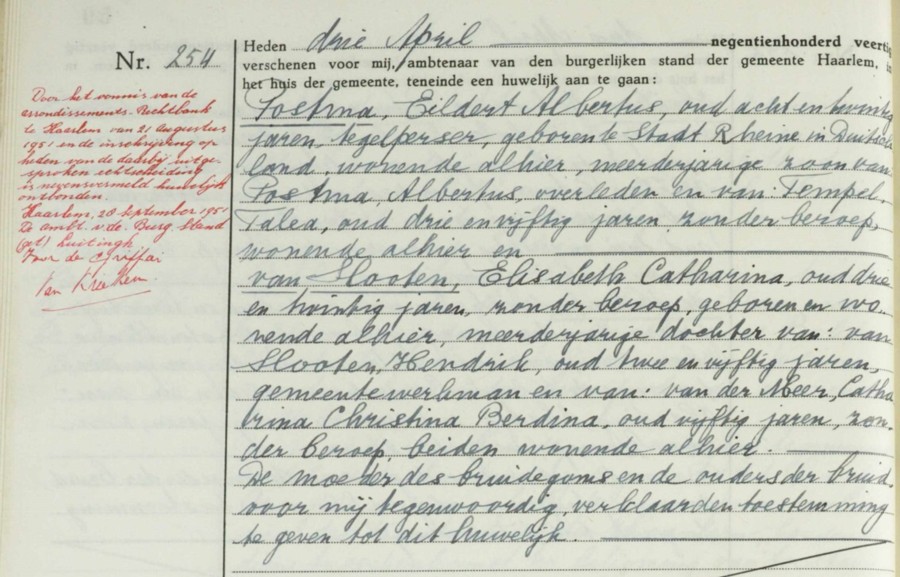 Nr. 254
Door het vonnis van de
arrondissements-Rechtbank
te Haarlem van 21 Augustus
1951 en de inschrijving op
heden van de daarbij uitge-
sproken echtscheiding
is nevensvermeld huwelijk
ontbonden.
Haarlem, 28 September 195
De ambt. v.d. Burg. Stand
(get) Luitingh
Voor de Griffier
Heden drie April negentienhonderd veertig
verschenen voor mij, ambtenaar van den burgerlijken stand der gemeente Haarlem, in
het huis der gemeente, teneinde een huwelijk aan te gaan:
Postma, Eildert Albertus, oud acht en twintig
jaren, tegelperser, geboren te Stadt Rheine in Duitsch-
land, wonende alhier, meerderjarige zoon van
Postma, Albertus, overleden en van: Tempel,
Talea, oud drie en vijftig jaren, zonder beroep,
wonende alhier en
van Slooten, Elisabeth Catharina, oud drie
en twintig jaren, zonder beroep, geboren en wo-
nende alhier, meerderjarige dochter van: van
Slooten, Hendrik, oud twee en vijftig jaren,
gemeentewerkman en van: van der Meer, Catha
rina Christina Berdina, oud vijftig jaren, zon-
der beroep, beiden wonende alhier.
De moeder des bruidegoms en de ouders der bruid,
voor mij tegenwoordig, verklaarden toestemming
te geven tot dit huwelijk.